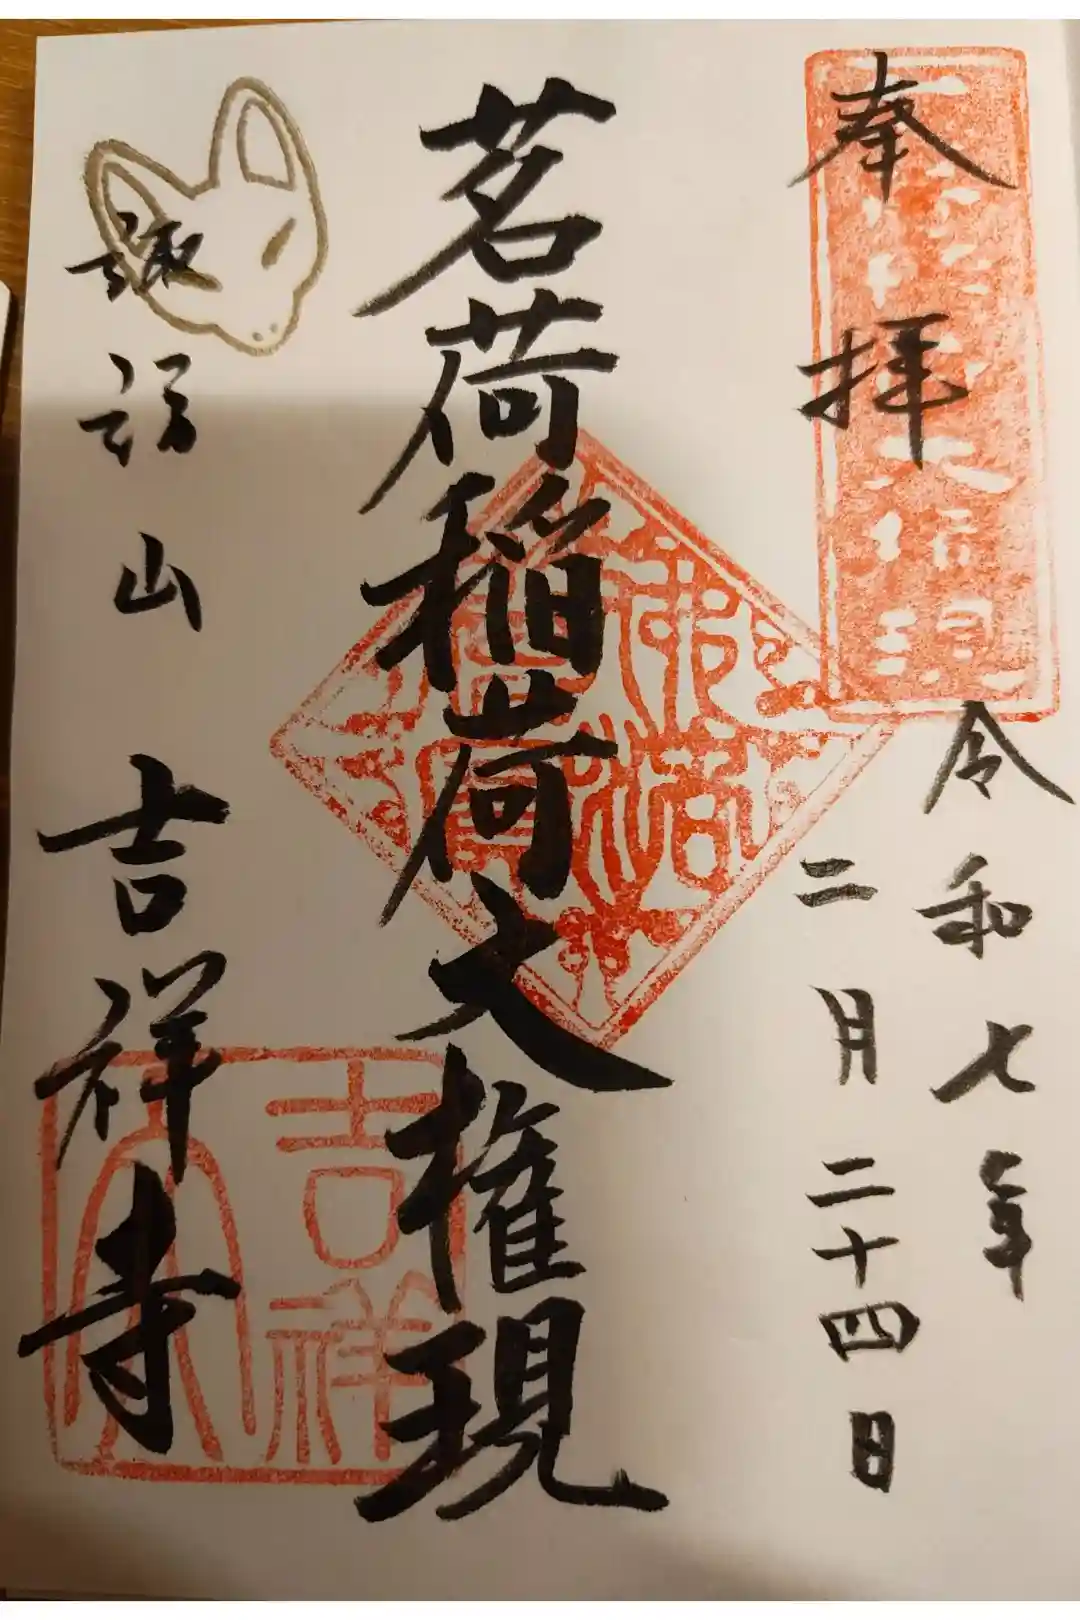 奉拝
令和七年
二月二十四日
茗荷稲荷大権現
諏訪山 吉祥寺
吉祥